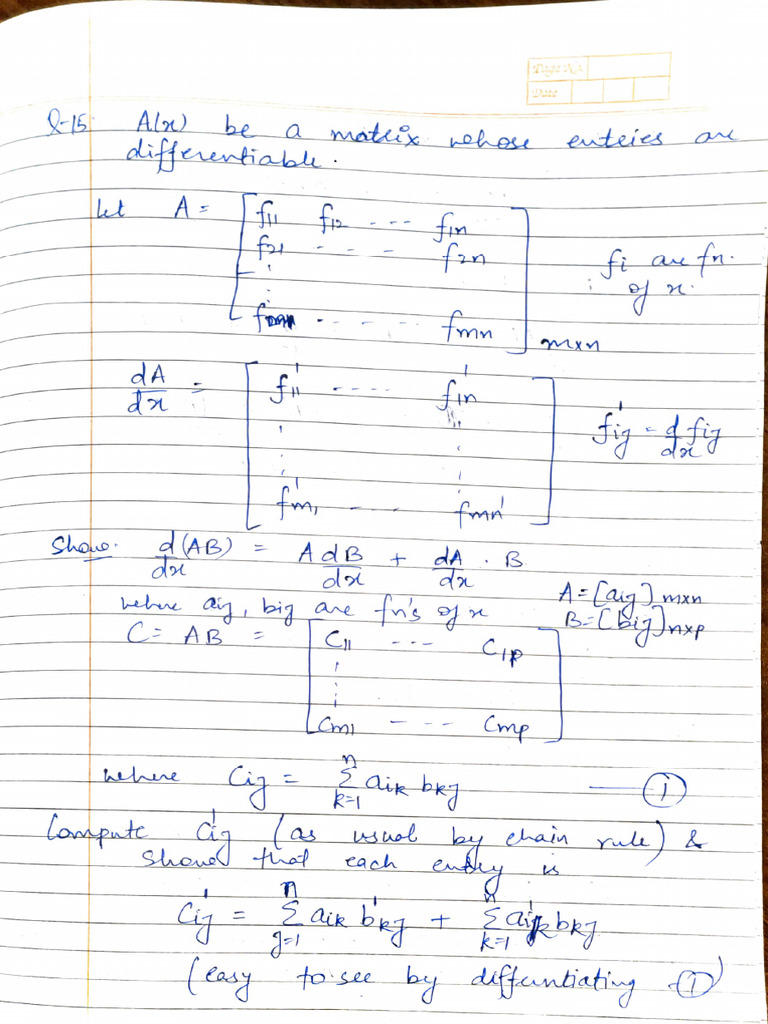 Page No.
Date
Q-15 A(x) be a matrix whose enteries are
differentiable.
let A = [ f11 f12 --- f1n
f21 - - - - f2n
fmn - - - - fmn ] mxn
fi are fn.
of x.
dA/dx = [ f11' ---- f1n'
fm1' - - - fmn' ]
fij' = d/dx fij
Show. d(AB)/dx = A dB/dx + dA/dx . B
where aij, bij are fn's of x
A = [aij] mxn
B = [bij] nxp
C = AB = [ C11 --- C1p
Cm1 - - - Cmp ]
where Cij = n Σ k=1 aik bkj —— ①
Compute Cij' (as usual by chain rule) &
show that each entry is
Cij' = n Σ j=1 aik b'kj + n Σ k=1 a'ik bkj
(easy to see by differntiating ①)